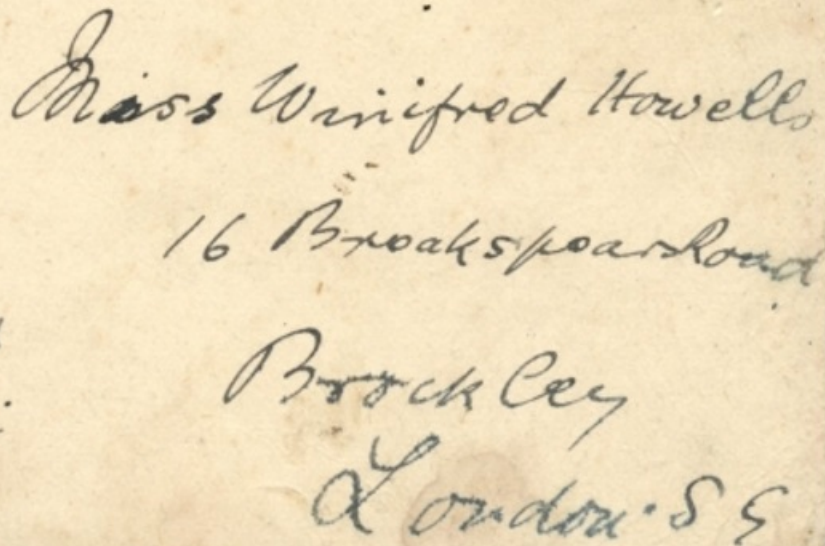 Miss Winifred Howells
16 Breakspears Road
Brockley
London. S E